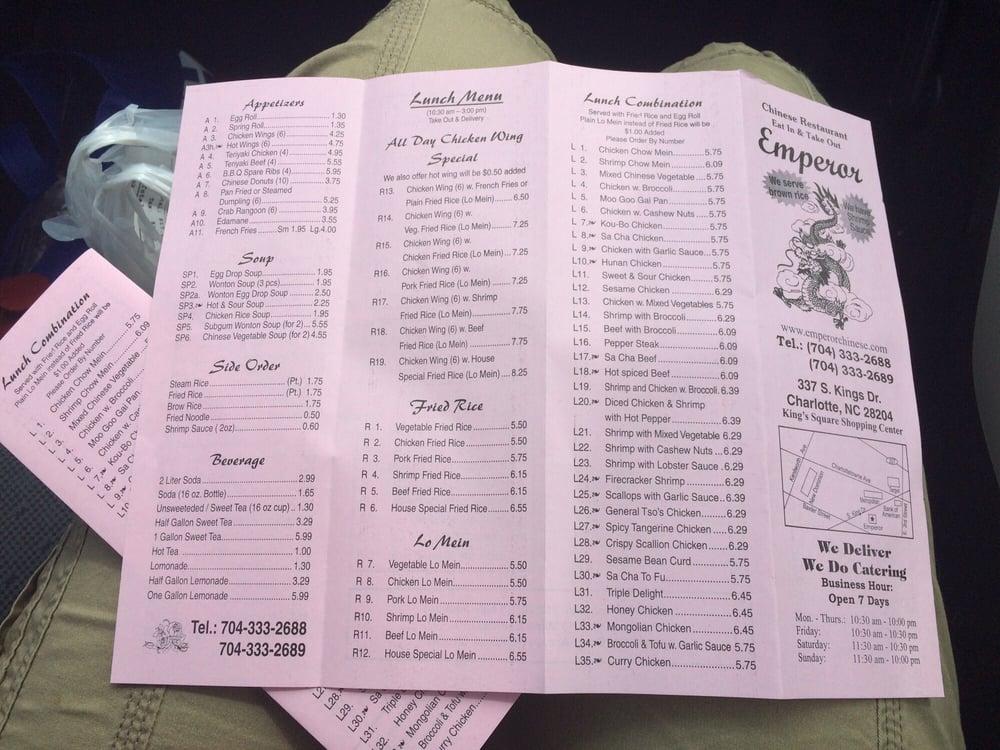 Appetizers
A 1. Egg Roll 1.30
A 2. Spring Roll 1.35
A 3. Chicken Wings (6) 4.25
A3h. Hot Wings (6) 4.75
A 4. Teriyaki Chicken (4) 4.95
A 5. Teriyaki Beef (4) 5.55
A 6. B.B.Q Spare Ribs (4) 5.95
A 7. Chinese Donuts (10) 3.75
A 8. Pan Fried or Steamed
Dumpling (6) 5.25
A 9. Crab Rangoon (6) 3.95
A10. Edamane 3.55
A11. French Fries Sm 1.95 Lg.4.00
Soup
SP1. Egg Drop Soup 1.95
SP2. Wonton Soup (3 pcs) 1.95
SP2a. Wonton Egg Drop Soup 2.50
SP3. Hot & Sour Soup 2.25
SP4. Chicken Rice Soup 1.95
SP5. Subgum Wonton Soup (for 2) 5.55
SP6. Chinese Vegetable Soup (for 2) 4.55
Side Order
Steam Rice (Pt.) 1.75
Fried Rice (Pt.) 1.75
Brow Rice 1.75
Fried Noodle 0.50
Shrimp Sauce (2oz) 0.60
Beverage
2 Liter Soda 2.99
Soda (16 oz. Bottle) 1.65
Unsweeteded / Sweet Tea (16 oz cup) 1.30
Half Gallon Sweet Tea 3.29
1 Gallon Sweet Tea 5.99
Hot Tea 1.00
Lomonade 1.30
Half Gallon Lemonade 3.29
One Gallon Lemonade 5.99
Tel.: 704-333-2688
704-333-2689
Lunch Menu
(10:30 am – 3:00 pm)
Take Out & Delivery
All Day Chicken Wing
Special
We also offer hot wing will be $0.50 added
R13. Chicken Wing (6) w. French Fries or
Plain Fried Rice (Lo Mein) 6.50
R14. Chicken Wing (6) w.
Veg. Fried Rice (Lo Mein) 7.25
R15. Chicken Wing (6) w.
Chicken Fried Rice (Lo Mein) 7.25
R16. Chicken Wing (6) w.
Pork Fried Rice (Lo Mein) 7.25
R17. Chicken Wing (6) w. Shrimp
Fried Rice (Lo Mein) 7.75
R18. Chicken Wing (6) w. Beef
Fried Rice (Lo Mein) 7.75
R19. Chicken Wing (6) w. House
Special Fried Rice (Lo Mein) 8.25
Fried Rice
R 1. Vegetable Fried Rice 5.50
R 2. Chicken Fried Rice 5.50
R 3. Pork Fried Rice 5.75
R 4. Shrimp Fried Rice 6.15
R 5. Beef Fried Rice 6.15
R 6. House Special Fried Rice 6.55
Lo Mein
R 7. Vegetable Lo Mein 5.50
R 8. Chicken Lo Mein 5.50
R 9. Pork Lo Mein 5.75
R10. Shrimp Lo Mein 6.15
R11. Beef Lo Mein 6.15
R12. House Special Lo Mein 6.55
Lunch Combination
Served with Fried Rice and Egg Roll
Plain Lo Mein instead of Fried Rice will be
$1.00 Added
Please Order By Number
L 1. Chicken Chow Mein 5.75
L 2. Shrimp Chow Mein 6.09
L 3. Mixed Chinese Vegetable 5.75
L 4. Chicken w. Broccoli 5.75
L 5. Moo Goo Gai Pan 5.75
L 6. Chicken w. Cashew Nuts 5.75
L 7. Kou-Bo Chicken 5.75
L 8. Sa Cha Chicken 5.75
L 9. Chicken with Garlic Sauce 5.75
L10. Hunan Chicken 5.75
L11. Sweet & Sour Chicken 5.75
L12. Sesame Chicken 6.29
L13. Chicken w. Mixed Vegetables 5.75
L14. Shrimp with Broccoli 6.29
L15. Beef with Broccoli 6.09
L16. Pepper Steak 6.09
L17. Sa Cha Beef 6.09
L18. Hot spiced Beef 6.09
L19. Shrimp and Chicken w. Broccoli 6.39
L20. Diced Chicken & Shrimp
with Hot Pepper 6.39
L21. Shrimp with Mixed Vegetable 6.29
L22. Shrimp with Cashew Nuts 6.29
L23. Shrimp with Lobster Sauce 6.29
L24. Firecracker Shrimp 6.29
L25. Scallops with Garlic Sauce 6.39
L26. General Tso's Chicken 6.29
L27. Spicy Tangerine Chicken 6.29
L28. Crispy Scallion Chicken 6.29
L29. Sesame Bean Curd 5.75
L30. Sa Cha To Fu 5.75
L31. Triple Delight 6.45
L32. Honey Chicken 6.45
L33. Mongolian Chicken 6.45
L34. Broccoli & Tofu w. Garlic Sauce 5.75
L35. Curry Chicken 5.75
Chinese Restaurant
Eat In & Take Out
Emperor
We serve
brown rice
We have
Shrimp
Sauce
www.emperorchinese.com
Tel.: (704) 333-2688
(704) 333-2689
337 S. Kings Dr.
Charlotte, NC 28204
King's Square Shopping Center
Kenilworth Ave
Charlottetowne Ave
Baxter Street
S. King Dr.
Target
Bank of
American
E. 3rd Street
Emperor
We Deliver
We Do Catering
Business Hour:
Open 7 Days
Mon. - Thurs.: 10:30 am - 10:00 pm
Friday: 10:30 am - 10:30 pm
Saturday: 11:30 am - 10:30 pm
Sunday: 11:30 am - 10:00 pm
Lunch Combination
Served with Fried Rice and Egg Roll
Plain Lo Mein instead of Fried Rice will be
$1.00 Added
Please Order By Number
L 1. Chicken Chow Mein 5.75
L 2. Shrimp Chow Mein 6.09
L 3. Mixed Chinese Vegetable
L 4. Chicken w. Broccoli
L 5. Moo Goo Gai Pan
L 6. Chicken w. Ca
L 7. Kou-Bo C
L 8. Sa C
L 9. C
L10
L28.
L29.
L30. Sa
L31. Triple
L32. Honey C
Mongolian C
Broccoli & Tofu w
urry Chicken